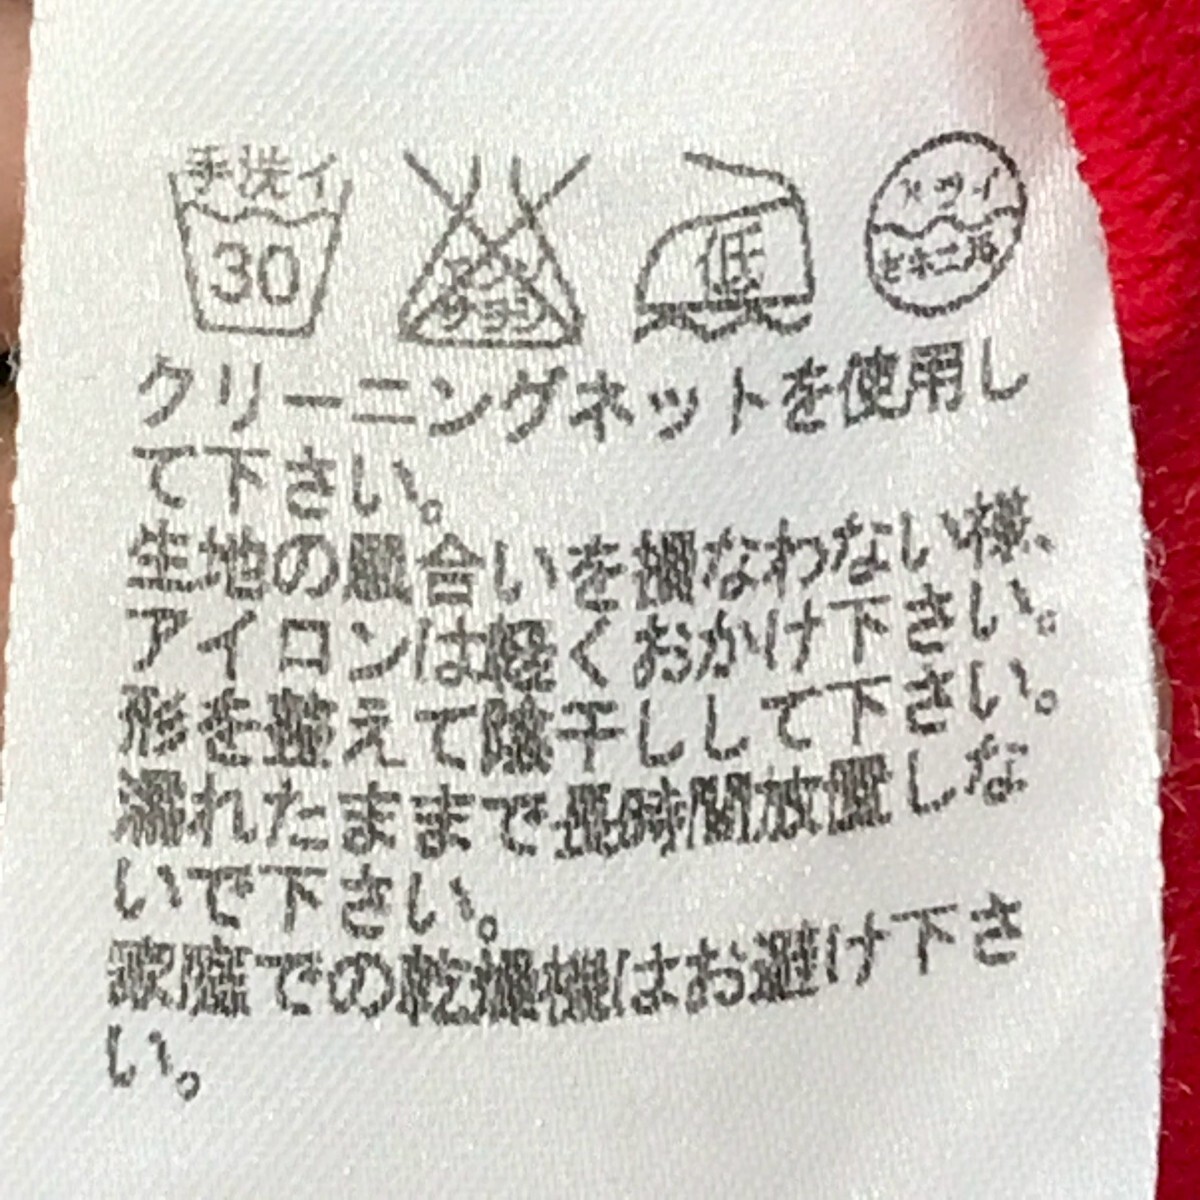 手洗イ
30
エンソ
サラシ
低
ドライ
セキユ系
クリーニングネットを使用し
て下さい。
生地の風合いを損なわない様、
アイロンは軽くおかけ下さい。
形を整えて陰干しして下さい。
濡れたままで長時間放置しな
いで下さい。
家庭での乾燥機はお避け下さ
い。